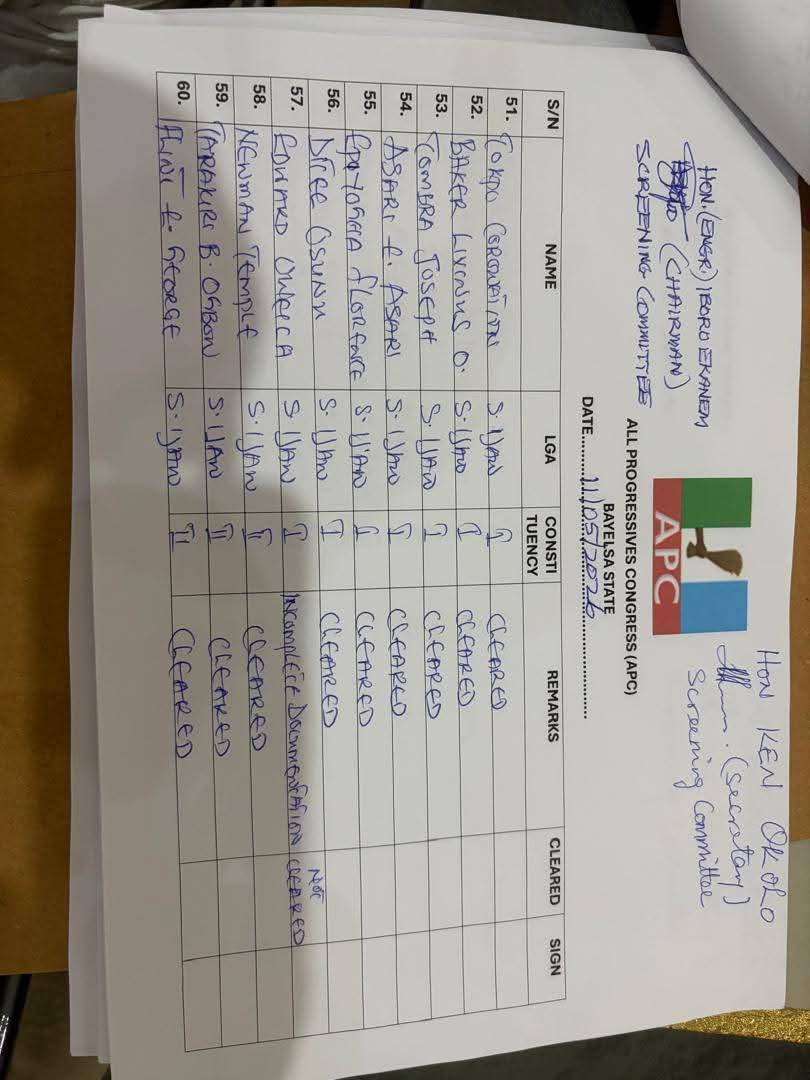 HON. (ENGR.) IBORO EKANEM
(CHAIRMAN)
SCREENING COMMITTEE
APC
HON KEN OKOLO
(Secretary)
Screening Committee
ALL PROGRESSIVES CONGRESS (APC)
BAYELSA STATE
DATE......11/05/2026......
S/N NAME LGA CONSTITUENCY REMARKS CLEARED SIGN
51. TOKPO CORONATION S. IJAW I CLEARED
52. BAKER LIVINUS O. S. IJAW I CLEARED
53. TOMBRA JOSEPH S. IJAW I CLEARED
54. ASARI E. ASARI S. IJAW I CLEARED
55. FLORENCE S. IJAW I CLEARED
56. OSUNU S. IJAW I CLEARED
57. EDWARD S. IJAW I INCOMPLETE DOCUMENTATION NOT CLEARED
58. NEWMAN TEMPLE S. IJAW II CLEARED
59. TARAKIRI B. OGBON S. IJAW II CLEARED
60. FLINT E. GEORGE S. IJAW II CLEARED